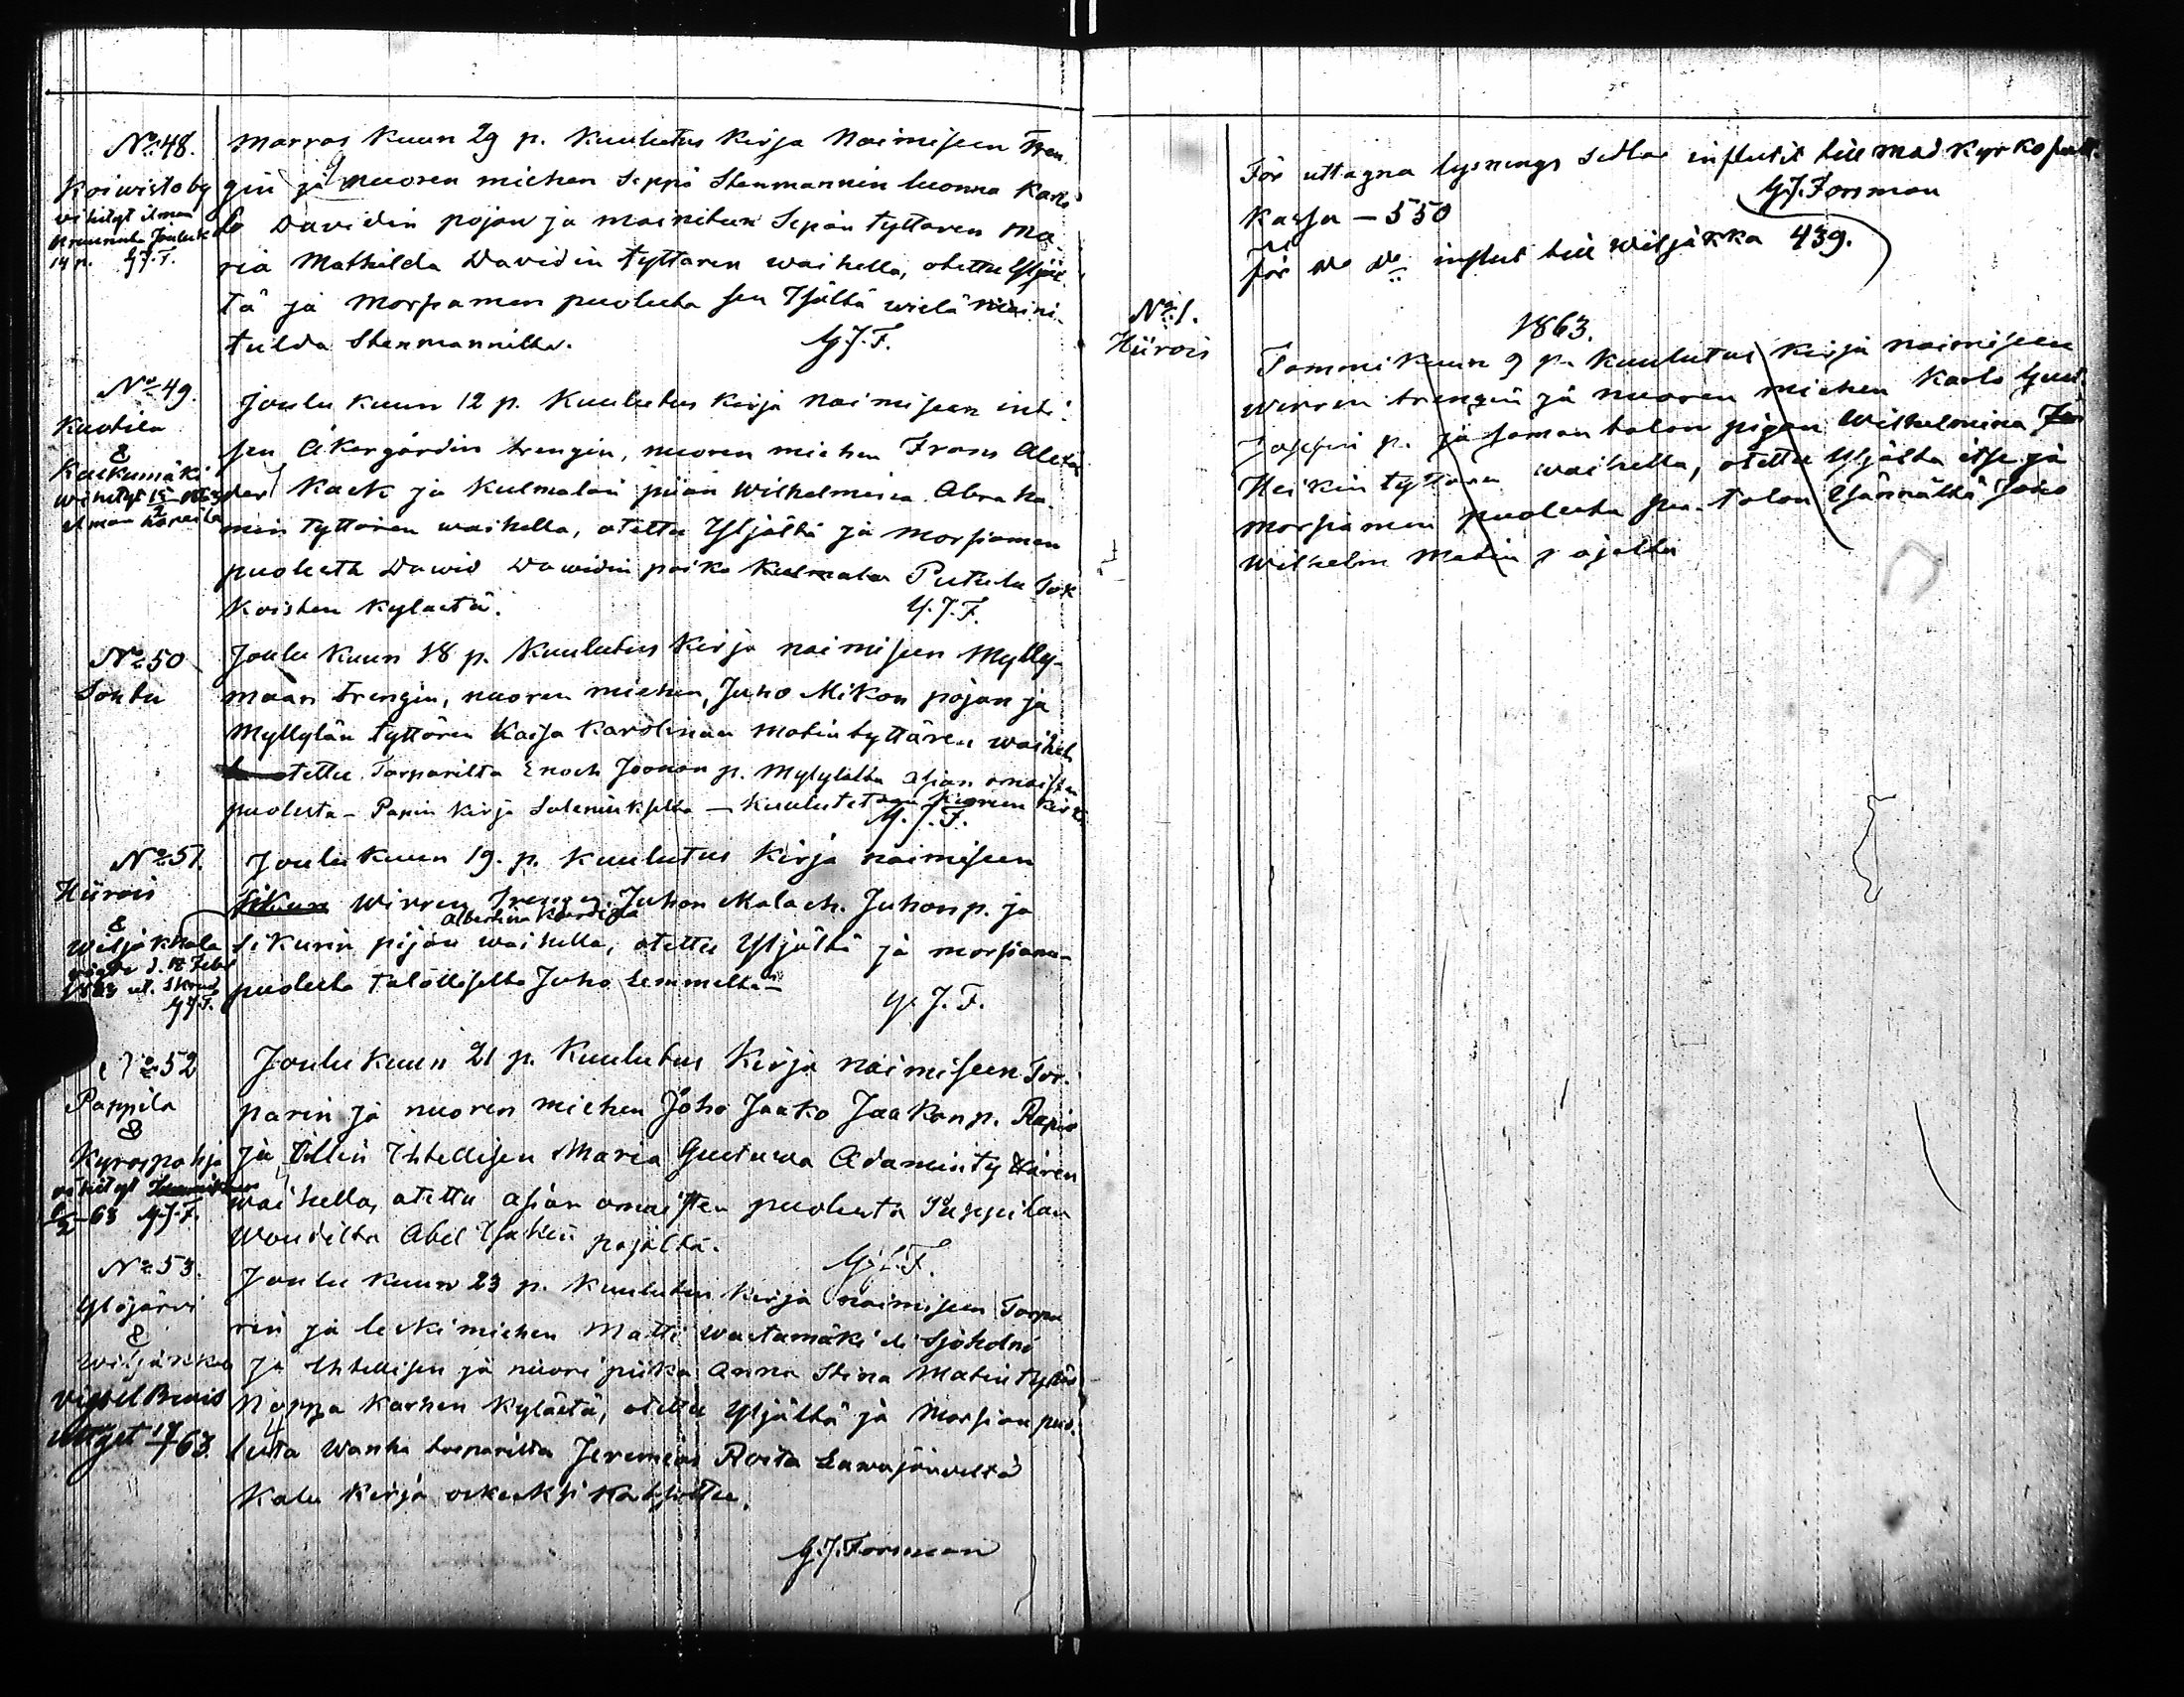 No 48.
Koiwistoby
wihityt ilman
kruunuta Jouluk
14 p. G.J.F.
Marras Kuun 29 p. Kuulutus Kirja Naimiseen Tren
gin ja nuoren miehen Seppä Stenmannin luonna Karl
Davidin pojan ja mainitun Sepän tyttären Ma-
ria Mathilda Davidin tyttären waihella, otettu Yljäl
tä ja Morsiamen puolesta sen Isältä wielä maini-
tulda Stenmannilta. G.J.F.
No 49.
Kuotila
&
Kuskumäki
wihityt
ilman
Joulu kuun 12 p. Kuulutus Kirja Naimiseen
sen Åkergårdin trengin, nuoren miehen Frans Alexan
der Kack ja Kulmalan piian Wilhelmina Abraha
min tyttären waihella, otettu Yljältä ja Morsiamen
puolesta Dawid Dawidin poika Kulmala Putula Sok
koisten kylästä. G.J.F.
No 50
Sontu
Joulu Kuun 18 p. Kuulutus Kirja naimiseen Mylly-
mään trengin, nuoren miehen, Juho Mikon pojan ja
Myllylän tyttären Kaisa Karolinan Matin tyttären waihel
la otettu Torparilta Enoch Joonan p. Myllylältä asian omaisten
puolesta - Papin Kirja - Kuulutetaan
G.J.F.
No 51.
Hiirois
&
Wiljakkala
vigde d. 12 Febr
1863 G.J.F.
Joulu Kuun 19. p. Kuulutus Kirja naimiseen
Sikurn Wirren Trengin Juhon Malach. Juhon p. ja
Albertina
Sikurin pijan waihella, otettu Yljältä ja morsiamen
puolesta talolliselta Juho Lemmeltä -
G.J.F.
No 52
Pappila
&
Kyröspohja
wihityt
63 G.J.F.
Joulu kuun 21 p. Kuulutus Kirja naimiseen Tor-
parin ja nuoren miehen Juho Jaako Jaakon p. Rapis
ja Ihtellisen Maria Gustawa Adamin tyttären
waihella, otettu asian omaisten puolesta Pappilan
Woudilta Abel Isakin pojalta. G.J.F.
No 53.
Ylöjärvi
&
Wiljakkala
vigsel Bewis
uttget 17/4 63.
Joulu Kuun 23 p. Kuulutus Kirja naimiseen Torpa
rin ja leskimiehen Matti Wastamäki eli Sjöholm
ja Ihtellisen ja nuori piika Anna Stina Matin tytär
Noppa Karhen kylästä, otettu Yljältä ja Morsian puo
lesta Wanha torparilta Jeremias Rosta Lawajärveltä
Kulu Kirja oikeaksi katsottu.
G.J. Forsman
För uttagna lysnings sedlar influtit till mod kyrko
Kassa - 550 G.J. Forsman
För Do Do influt till wiljakka 439.
1863.
No 1.
Hiirois
Tammi Kuun 9 p. Kuulutus Kirja naimiseen
Wirrin trengin ja nuoren miehen Karlo Gust.
Josefin p. ja saman talon pigan Wilhelmina
Heikin tyttären waihella, otettu Yljältä itse ja
morsiamen puolesta sen talon Isännältä Juho
Wilhelm Matin pojalta